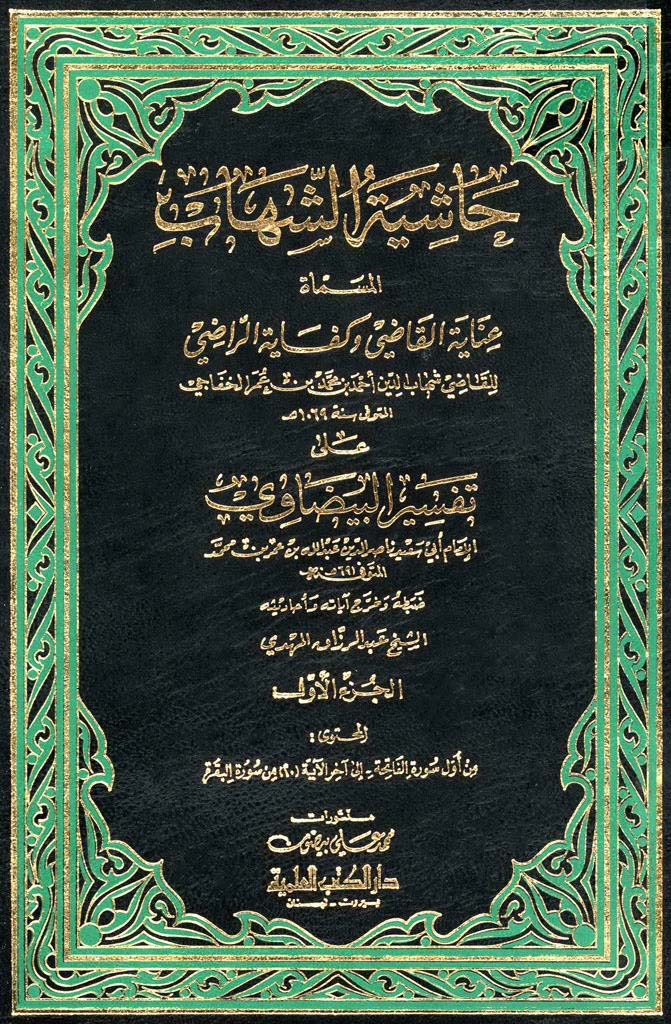 حَاشِيَةُ الشِّهَابِ
المسَمّاة
عِنَاية القَاضِي وَكفَاية الرّاضِي
للقَاضِي شهَاب الدِّين أحمَد بن محمَّد بن عُمَر الخفَاجي
المتوفى سنة ١٠٦٩هـ
عَلى
تَفسِير البَيضَاوِي
الإمَام أبي سَعيد ناصر الدّين عَبد الله بن عمر بن محمّد
المتوفى ٦٩١هـ
ضَبَطَهُ وَخرَّج آياته وَأحَاديثه
الشيخ عَبد الرزّاق المهدي
الجُزء الأوّل
المحتوى:
مِن أوّل سُورة الفَاتِحَة - إلى آخِر الآيَة (٢٠) مِن سُورَة البَقَرة
منشورات
محمد علي بيضون
دار الكتب العلمية
بيروت - لبنان